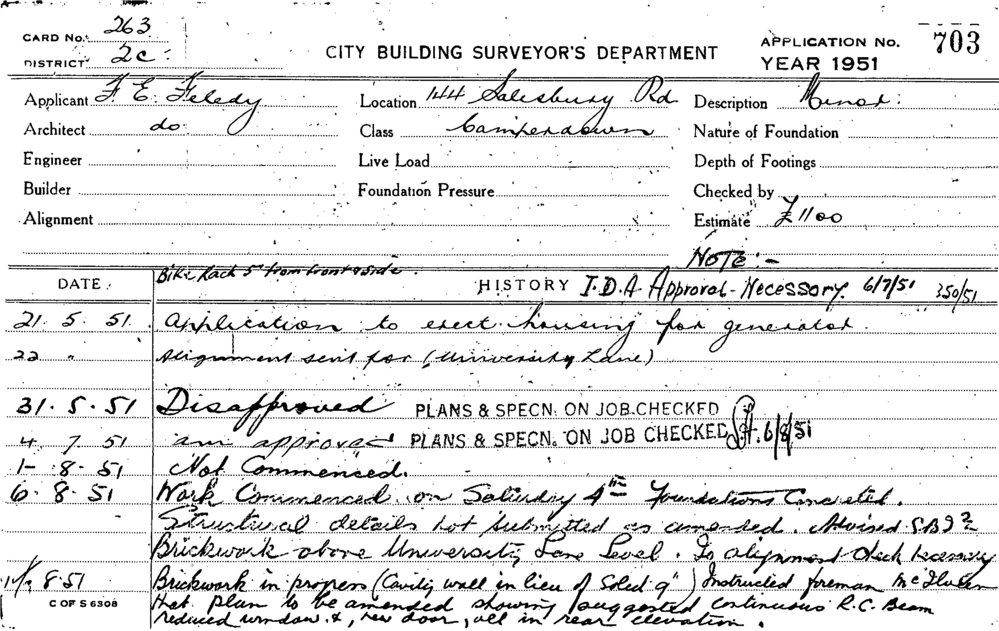 CARD No. 263
DISTRICT 2c.
CITY BUILDING SURVEYOR'S DEPARTMENT
APPLICATION No. 703
YEAR 1951
Applicant F. E. Feledy Location 144 Salesbury Rd Description Minor.
Architect do Class Camperdown Nature of Foundation
Engineer Live Load Depth of Footings
Builder Foundation Pressure Checked by
Alignment Estimate £1100
NOTE:-
Bike Rack 5" from front & side.
DATE HISTORY I.D.A. Approval Necessary. 6/7/51 350/51
21. 5. 51. Application to erect housing for generator.
22 " Alignment sent for (University Lane)
31. 5. 51 Disapproved PLANS & SPECN. ON JOB CHECKED
4. 7. 51 am approved PLANS & SPECN. ON JOB CHECKED 6/8/51
1- 8. 51 Not Commenced.
6. 8. 51 Work Commenced on Saturday 4th Foundations Concreted.
Structural details not submitted as amended. Advised
Brickwork above University Lane Level. Is alignment check necessary
8.51 Brickwork in progress (Cavity wall in lieu of Solid 9") Instructed foreman
C OF S 6308
that plan to be amended showing suggested continuous R.C. Beam
reduced window &, new door, all in rear elevation.